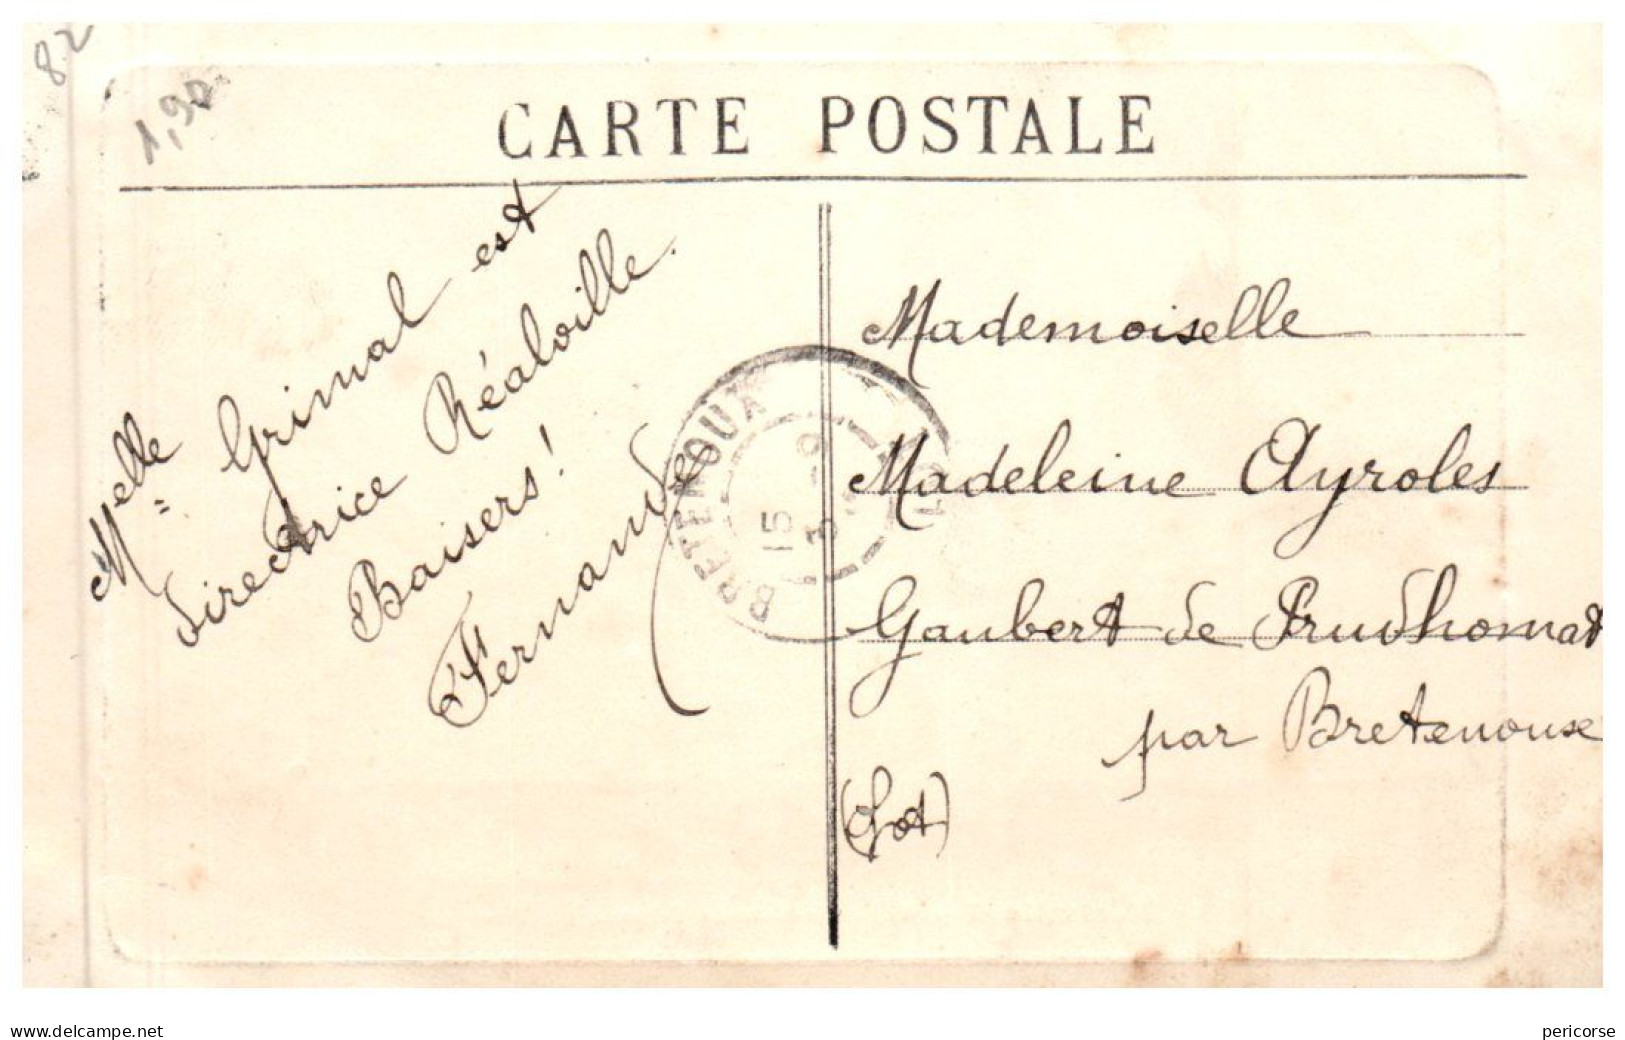 82
1,90
CARTE POSTALE
Melle Grimal est
directrice Réalville.
Baisers!
Fernande
BRETENOUX
15
Mademoiselle
Madeleine Ayroles
Gaubert de Prudhomat
par Bretenoux
(Lot)
www.delcampe.net
pericorse